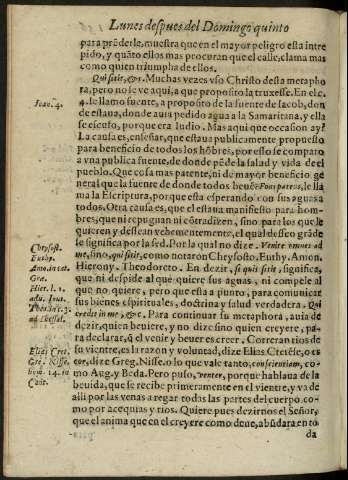 Lunes despues del Domingo quinto
para prẽderle, muestra que en el mayor peligro esta intre
pido, y quãto ellos mas procuran que el calle, clama mas
como quien triumpha de ellos.
Qui sitit, &c. Muchas vezes vso Christo desta metapho
ra, pero no se ve aqui, a que proposito la truxesse. En el c.
Ioan. 4.
4. le llamo fuente, a proposito de la fuente de Iacob, don
de estaua, donde auia pedido agua a la Samaritana, y ella
se escuso, porque era Iudio. Mas aqui que occasion ay?
La causa es, enseñar, que estaua publicamente propuesto
para beneficio de todos los hõbres, por esso se comparo
a vna publica fuente, de donde pẽde la salud y vida de el
pueblo. Que cosa mas patente, ni de mayor beneficio ge
neral que la fuente de donde todos beuẽ? Fons patens, le lla
ma la Escriptura, porque esta esperando con sus aguas a
todos. Otra causa es, que el estaua manifiesto para hom-
bres, que ni repugnan ni cõtradizen, sino para los que le
quieren y dessean vehementemente, el qual desseo grãde
Chrysost.
le significa por la sed. Por lo qual no dize. Venite omnes ad
Euthy.
me, sino, qui sitit, como notaron Chrysosto. Euthy. Amon.
Amo. in cat.
Gre.
Hierony. Theodoreto. En dezir, si quis sitit, significa,
Hier. l. 1.
que ni despide al que quiere sus aguas, ni compele al
adu. Ioui.
que no quiere, pero que esta a punto, para comunicar
sus bienes espirituales, doctrina y salud verdadera. Qui
credit in me, &c. Para continuar su metaphora, auia de
dezir, quien beuiere, y no dize sino quien creyere, pa-
ra declarar, q̃ el venir y beuer es creer. Correran rios de
Elias Cret.
su vientre, es la razon y voluntad, dize Elias Cretẽse, o es
Gre. Nisse.
cor, dize Greg. Nisse. o lo que vale tanto, conscientiam, co-
hom. 14. in
mo Aug. y Beda. Pero puso, venter, porque hablaua de la
Cant.
beuida, que se recibe primeramente en el vientre, y va de
alli por las venas a regar todas las partes del cuerpo, co-
mo por acequias y rios. Quiere pues dezirnos el Señor,
que el anima que en el creyere como deue, abũdara en to
da